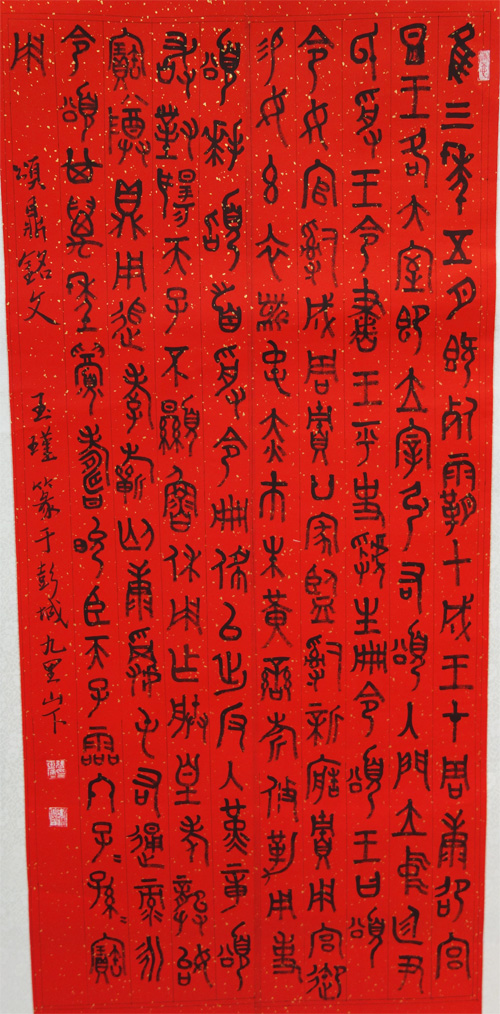 隹三年五月既死霸甲戌王才周康邵宮
旦王各大室即立宰弘右頌入門立中廷尹
氏受王令書王乎史虢生冊令頌王曰頌
令女官司成周貯廿家監司新造貯用宮御
易女玄衣黹屯赤巿朱黃鑾旂攸勒用事
頌拜稽首受令冊佩以出反入堇章頌
敢對揚天子不顯魯休用乍朕皇考龏始
寶尊鼎用追孝祈匄康屯右通祿永
令頌其萬年眉壽畯臣天子霝冬子=孫=寶
用
頌鼎銘文 王瑾篆于彭城九里山下